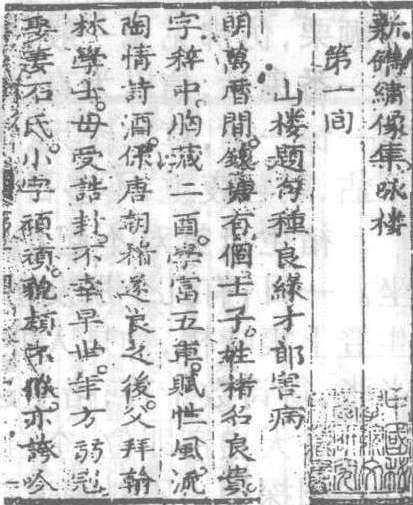 新鐫繡像集咏楼
第一回
山楼题句種良緣才郎害病
明萬曆間錢塘有個士子。姓褚名良貴。
字粹中。胸藏二酉。學富五車。賦性風流。
陶情詩酒。係唐朝褚遂良之後。父拜翰
林學士。母受誥封。不幸早世。年方弱冠
娶妻石氏。小字頑頑。貌頗亦諳吟